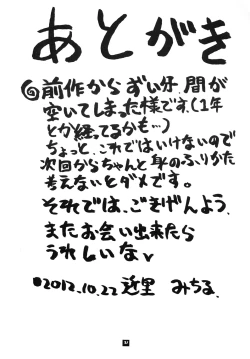 あとがき
◎前作からずい分、間が
空いてしまった様です。(1年
とか経ってるかも…)
ちょっと、これではいけないので
次回からちゃんと身のふりかた
考えないとダメです。
それでは、ごきげんよう。
またお会い出来たら
うれしいな
●2012.10.22 近里 みちる